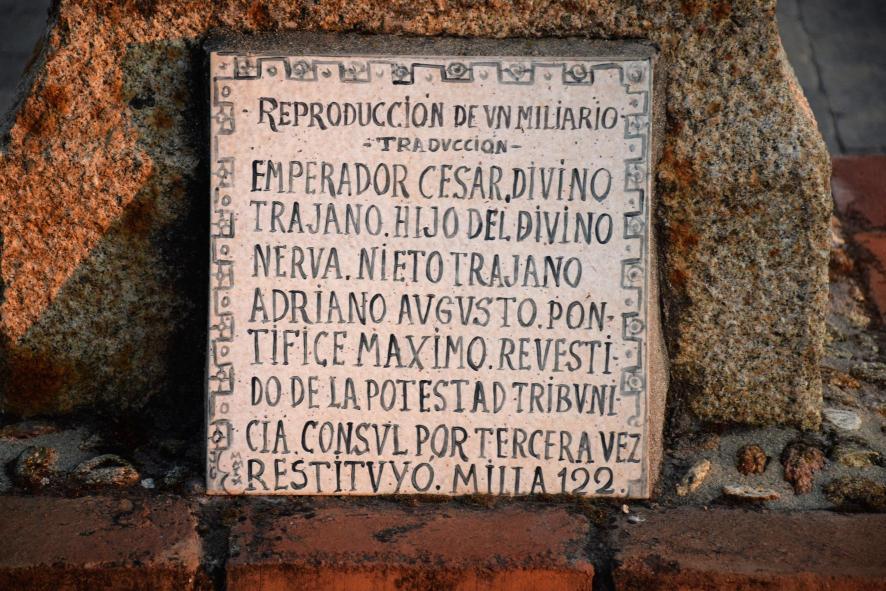 REPRODUCCIÓN DE VN MILIARIO
-TRADVCCION-
EMPERADOR CESAR, DIVINO
TRAJANO. HIJO DEL DIVINO
NERVA. NIETO TRAJANO
ADRIANO. AVGVSTO. PON-
TIFICE MAXIMO. REVESTI
DO DE LA POTESTAD TRIBVNI
CIA. CONSVL POR TERCERA VEZ
RESTITVYÓ. MILLA 122.